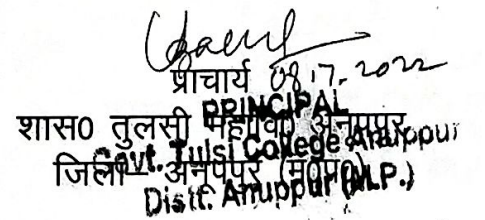 प्राचार्य 08.7.2022
PRINCIPAL
शास0 तुलसी महावि0 अनूपपुर
Govt. Tulsi College Anuppur
जिला- अनूपपुर (म0प्र0)
Distt. Anuppur (M.P.)